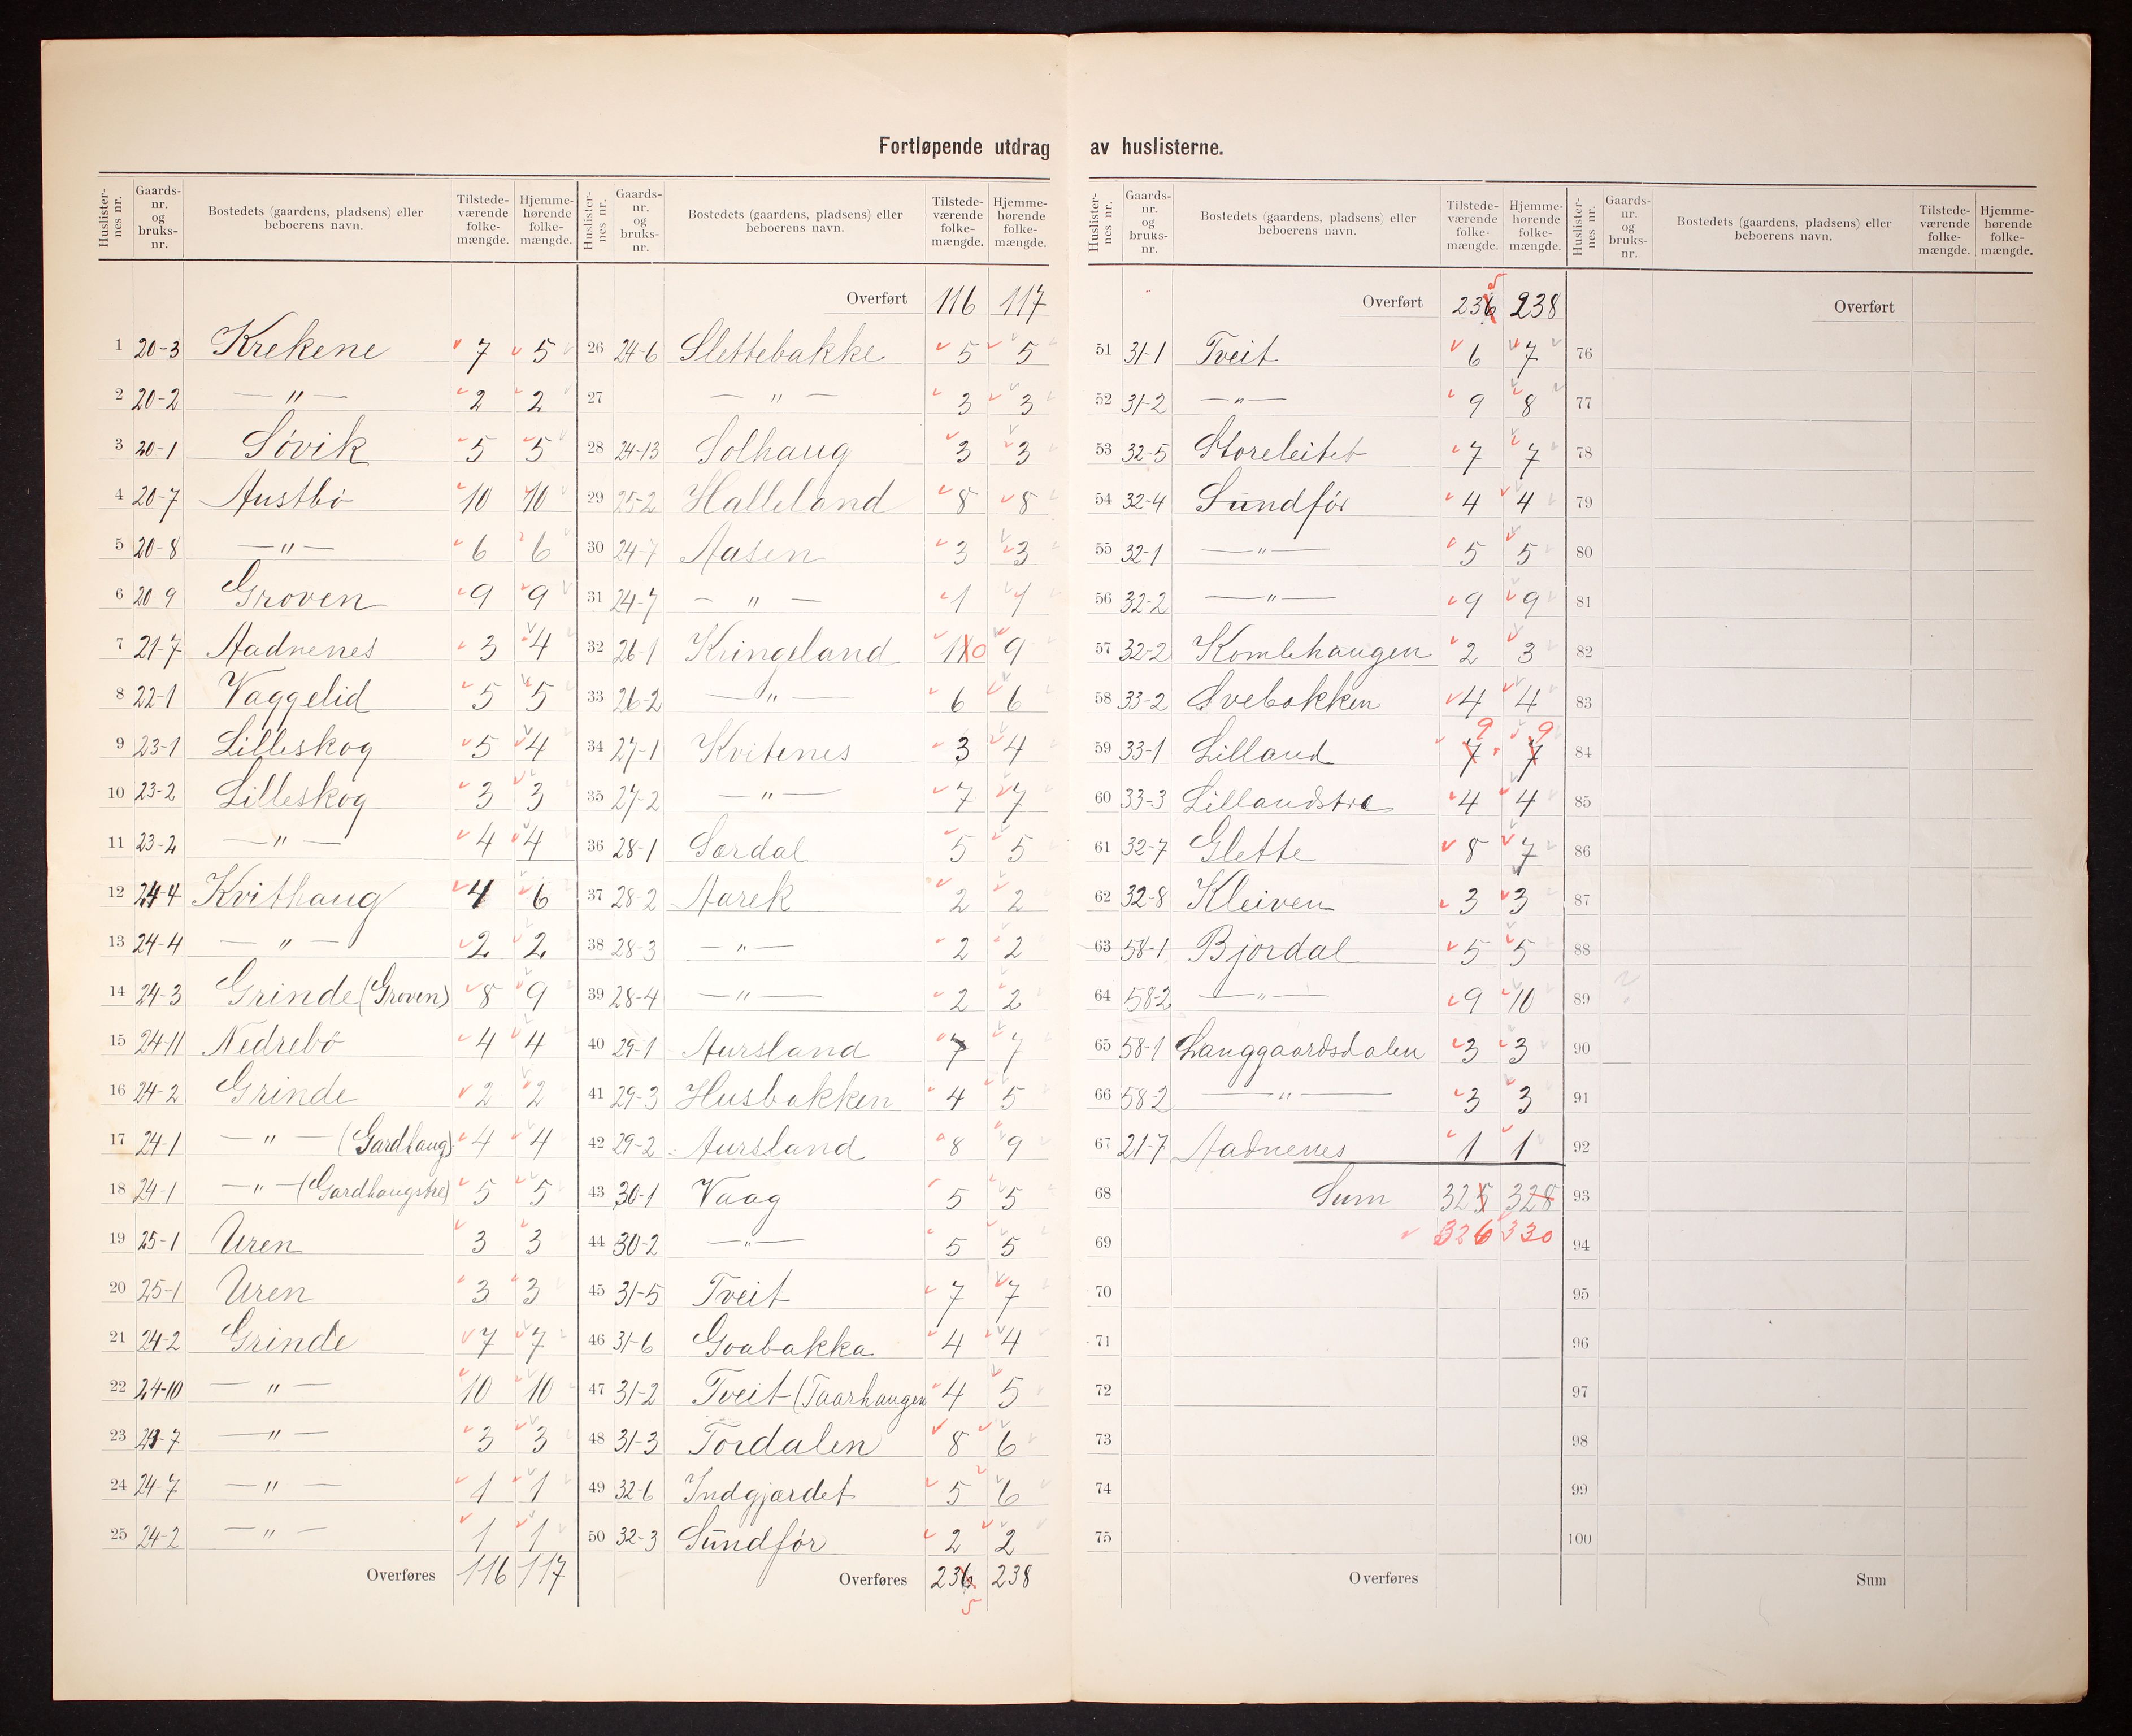 Fortløpende utdrag av huslisterne.
Huslisternes nr. Gaards-nr. og bruks-nr. Bostedets (gaardens, pladsens) eller beboerens navn. Tilstede-værende folke-mængde. Hjemme-hørende folke-mængde.
1 20-3 Krekene 7 5
2 20-2 — " — 2 2
3 20-1 Søvik 5 5
4 20-7 Austbø 10 10
5 20-8 — " — 6 6
6 20 9 Groven 9 9
7 21-7 Aadnenes 3 4
8 22-1 Vaggelid 5 5
9 23-1 Lilleskog 5 4
10 23-2 Lilleskog 3 3
11 23-2 — " — 4 4
12 24-4 Kvithaug 4 6
13 24-4 — " — 2 2
14 24-3 Grinde (Groven) 8 9
15 24-11 Nedrebö 4 4
16 24-2 Grinde 2 2
17 24-1 — " — (Gardhaug) 4 4
18 24-1 — " — (Gardhaugstre) 5 5
19 25-1 Uren 3 3
20 25-1 Uren 3 3
21 24-2 Grinde 7 7
22 24-10 — " — 10 10
23 24-7 — " — 3 3
24 24-7 — " — 1 1
25 24-2 — " — 1 1
Overføres 116 117
Huslisternes nr. Gaards-nr. og bruks-nr. Bostedets (gaardens, pladsens) eller beboerens navn. Tilstede-værende folke-mængde. Hjemme-hørende folke-mængde.
Overført 116 117
26 24-6 Slettebakke 5 5
27 — " — 3 3
28 24-13 Solhaug 3 3
29 25-2 Halleland 8 8
30 24-7 Aasen 3 3
31 24-7 — " — 1 1
32 26-1 Kringeland 110 9
33 26-2 — " — 6 6
34 27-1 Kvitenes 3 4
35 27-2 — " — 7 7
36 28-1 Sørdal 5 5
37 28-2 Aarek 2 2
38 28-3 — " — 2 2
39 28-4 — " — 2 2
40 29-1 Aursland 7 7
41 29-3 Husbakken 4 5
42 29-2 Aursland 8 9
43 30-1 Vaag 5 5
44 30-2 — " — 5 5
45 31-5 Tveit 7 7
46 31-6 Goabakka 4 4
47 31-2 Tveit (Taarhaugen 4 5
48 31-3 Tordalen 8 6
49 32-6 Indgjærdet 5 6
50 32-3 Sundför 2 2
Overføres 236 238
5
Huslisternes nr. Gaards-nr. og bruks-nr. Bostedets (gaardens, pladsens) eller beboerens navn. Tilstede-værende folke-mængde. Hjemme-hørende folke-mængde.
5
Overført 236 238
51 31-1 Tveit 6 7
52 31-2 — " — 9 8
53 32-5 Storeleitet 7 7
54 32-4 Sundför 4 4
55 32-1 — " — 5 5
56 32-2 — " — 9 9
57 32-2 Komlehaugen 2 3
58 33-2 Svebakken 4 4
9 9
59 33-1 Lilland 7 7
60 33-3 Lillandstræ 4 4
61 32-7 Glette 8 7
62 32-8 Kleiven 3 3
63 58-1 Bjordal 5 5
64 58-2 — " — 9 10
65 58-1 Langgaardsdalen 3 3
66 58-2 — " — 3 3
67 21-7 Aadnenes 1 1
68 Sum 325 328
69 326 330
70
71
72
73
74
75
Overføres
Huslisternes nr. Gaards-nr. og bruks-nr. Bostedets (gaardens, pladsens) eller beboerens navn. Tilstede-værende folke-mængde. Hjemme-hørende folke-mængde.
Overført
76
77
78
79
80
81
82
83
84
85
86
87
88
89
90
91
92
93
94
95
96
97
98
99
100
Sum